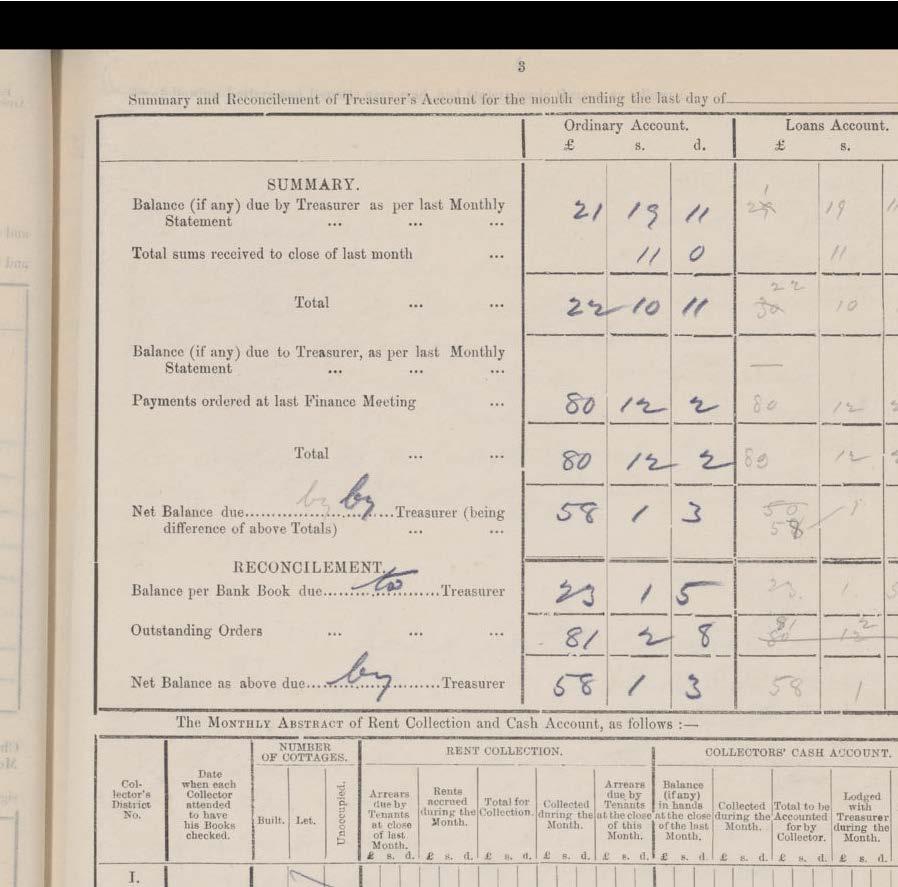 3
Summary and Reconcilement of Treasurer's Account for the month ending the last day of
Ordinary Account. Loans Account.
£ s. d. £ s.
SUMMARY.
Balance (if any) due by Treasurer as per last Monthly
Statement ... ... ... 21 19 11 19 11
Total sums received to close of last month ... 11 0 11
22
Total ... ... 22 10 11 30 10
Balance (if any) due to Treasurer, as per last Monthly
Statement ... ... ... —
Payments ordered at last Finance Meeting ... 80 12 2 80 12 2
Total ... ... 80 12 2 80 12 2
Net Balance due by by Treasurer (being 58 1 3 50 1
difference of above Totals) ... ... 58
RECONCILEMENT.
Balance per Bank Book due to Treasurer 23 1 5 23 1 5
Outstanding Orders ... ... ... 81 2 8 81 2
80 12
Net Balance as above due by Treasurer 58 1 3 58 1
The MONTHLY ABSTRACT of Rent Collection and Cash Account, as follows :—
NUMBER OF COTTAGES. RENT COLLECTION. COLLECTORS' CASH ACCOUNT.
Collector's District No.
Date when each Collector attended to have his Books checked.
Built. Let. Unoccupied.
Arrears due by Tenants at close of last Month.
Rents accrued during the Month.
Total for Collection.
Collected during the Month.
Arrears due by Tenants at the close of this Month.
Balance (if any) in hands at the close of the last Month.
Collected during the Month.
Total to be Accounted for by Collector.
Lodged with Treasurer during the Month.
£ s. d. £ s. d. £ s. d. £ s. d. £ s. d. £ s. d. £ s. d. £ s. d. £ s. d.
I.